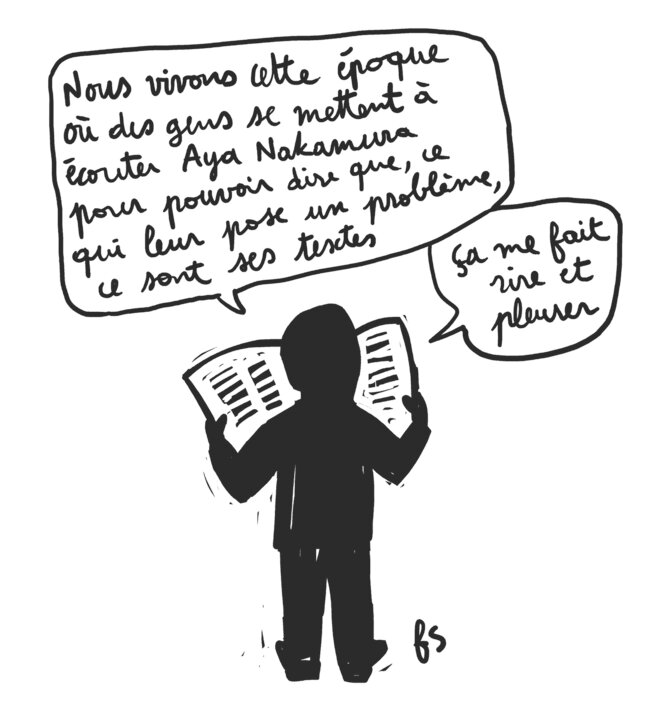 Nous vivons cette époque
où des gens se mettent à
écouter Aya Nakamura
pour pouvoir dire que, ce
qui leur pose un problème,
ce sont ses textes
ça me fait
rire et
pleurer
fs